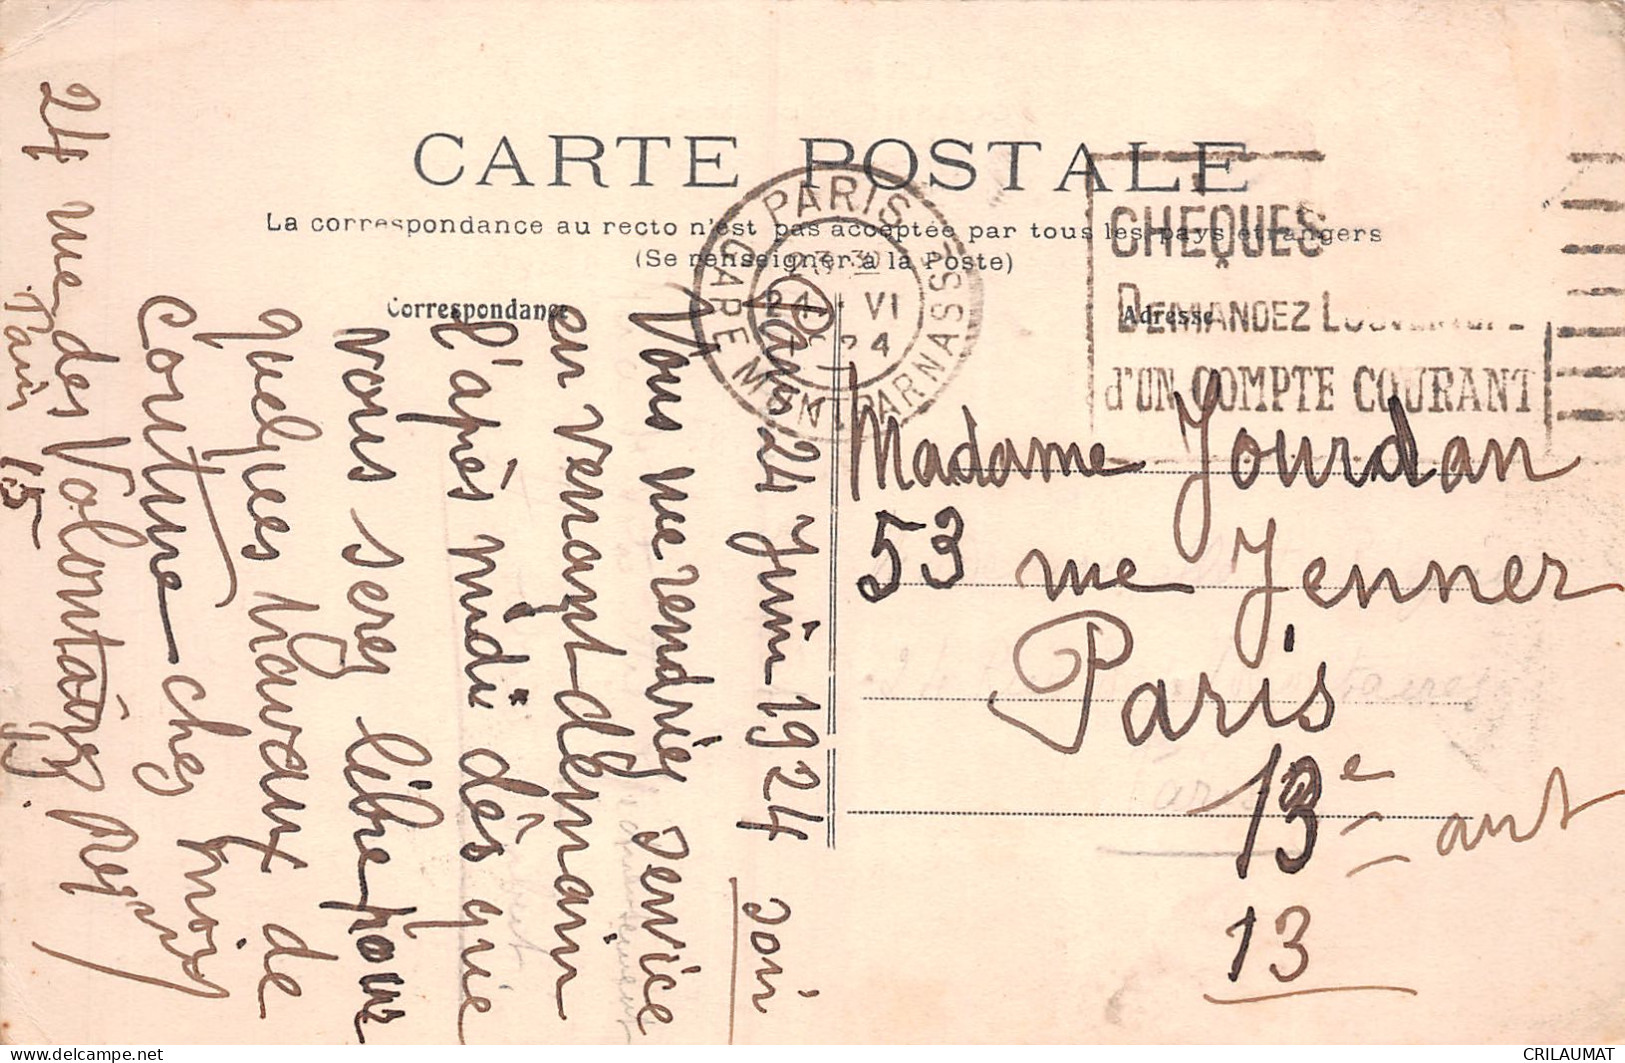 CARTE POSTALE
La correspondance au recto n'est pas acceptée par tous les pays étrangers
(Se renseigner à la Poste)
Correspondance
Adresse
PARIS
GARE MONTPARNASSE
24 VI
24
CHEQUES
DEMANDEZ L'OUVERTURE
d'UN COMPTE COURANT
Paris 24 Juin 1924 soir
Vous me rendriez service
en venant demain
l'après midi dès que
vous serez libre pour
quelques travaux de
couture chez moi
24 rue des Volontaires
Paris 15
Madame Jourdan
53 rue Jenner
Paris
13e arrt
13
CRILAUMAT